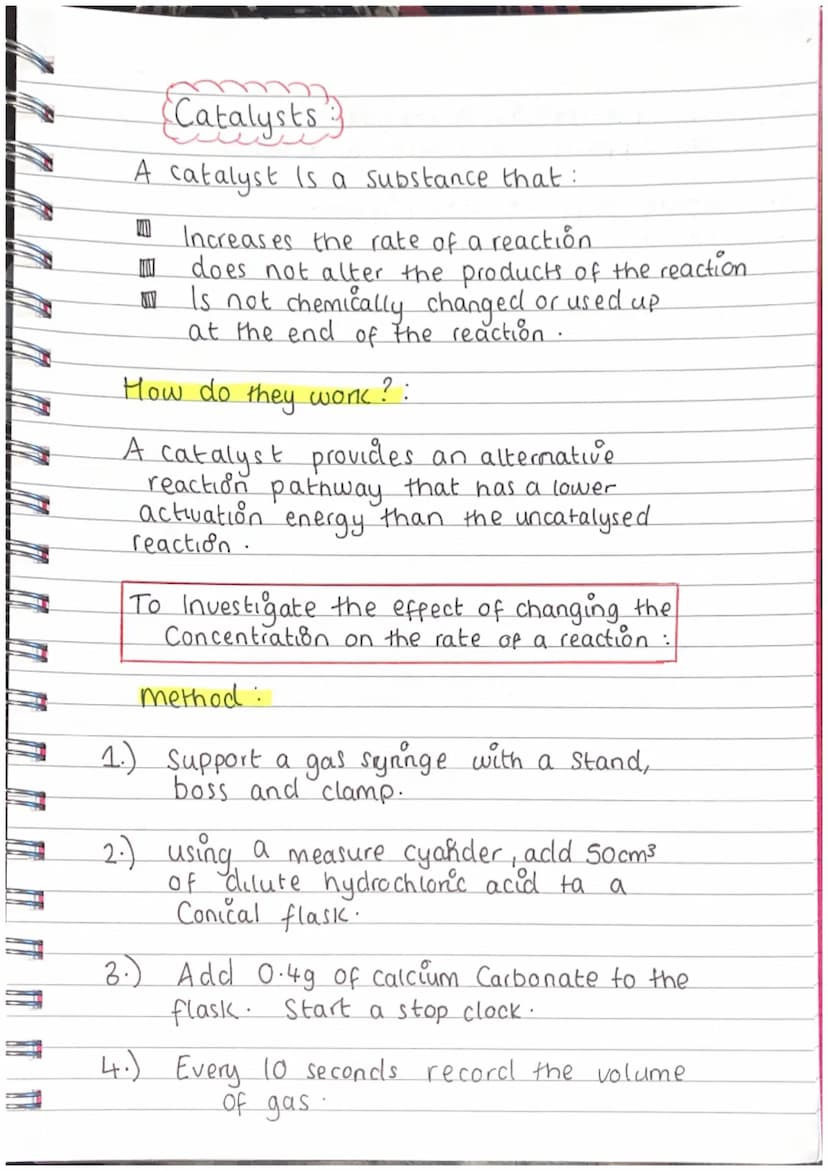 Catalysts:
A catalyst is a substance that:
Increases the rate of a reaction
does not alter the products of the reaction
Is not chemically changed or used up
at the end of the reaction.
How do they work?:
A catalyst provides an alternative
reaction pathway that has a lower
activation energy than the uncatalysed
reaction.
To Investigate the effect of changing the
Concentration on the rate of a reaction:
method:
1.) Support a gas syringe with a stand,
boss and clamp.
2.) using a measure cylinder, add 50cm³
of dilute hydrochloric acid ta a
Conical flask.
3.) Add 0.4g of calcium Carbonate to the
flask. Start a stop clock.
4.) Every 10 seconds record the volume
of gas.